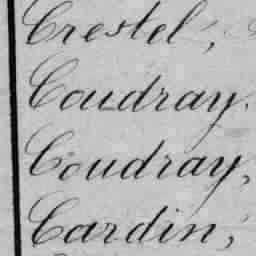 Crestel,
Coudray.
Coudray,
Cardin,